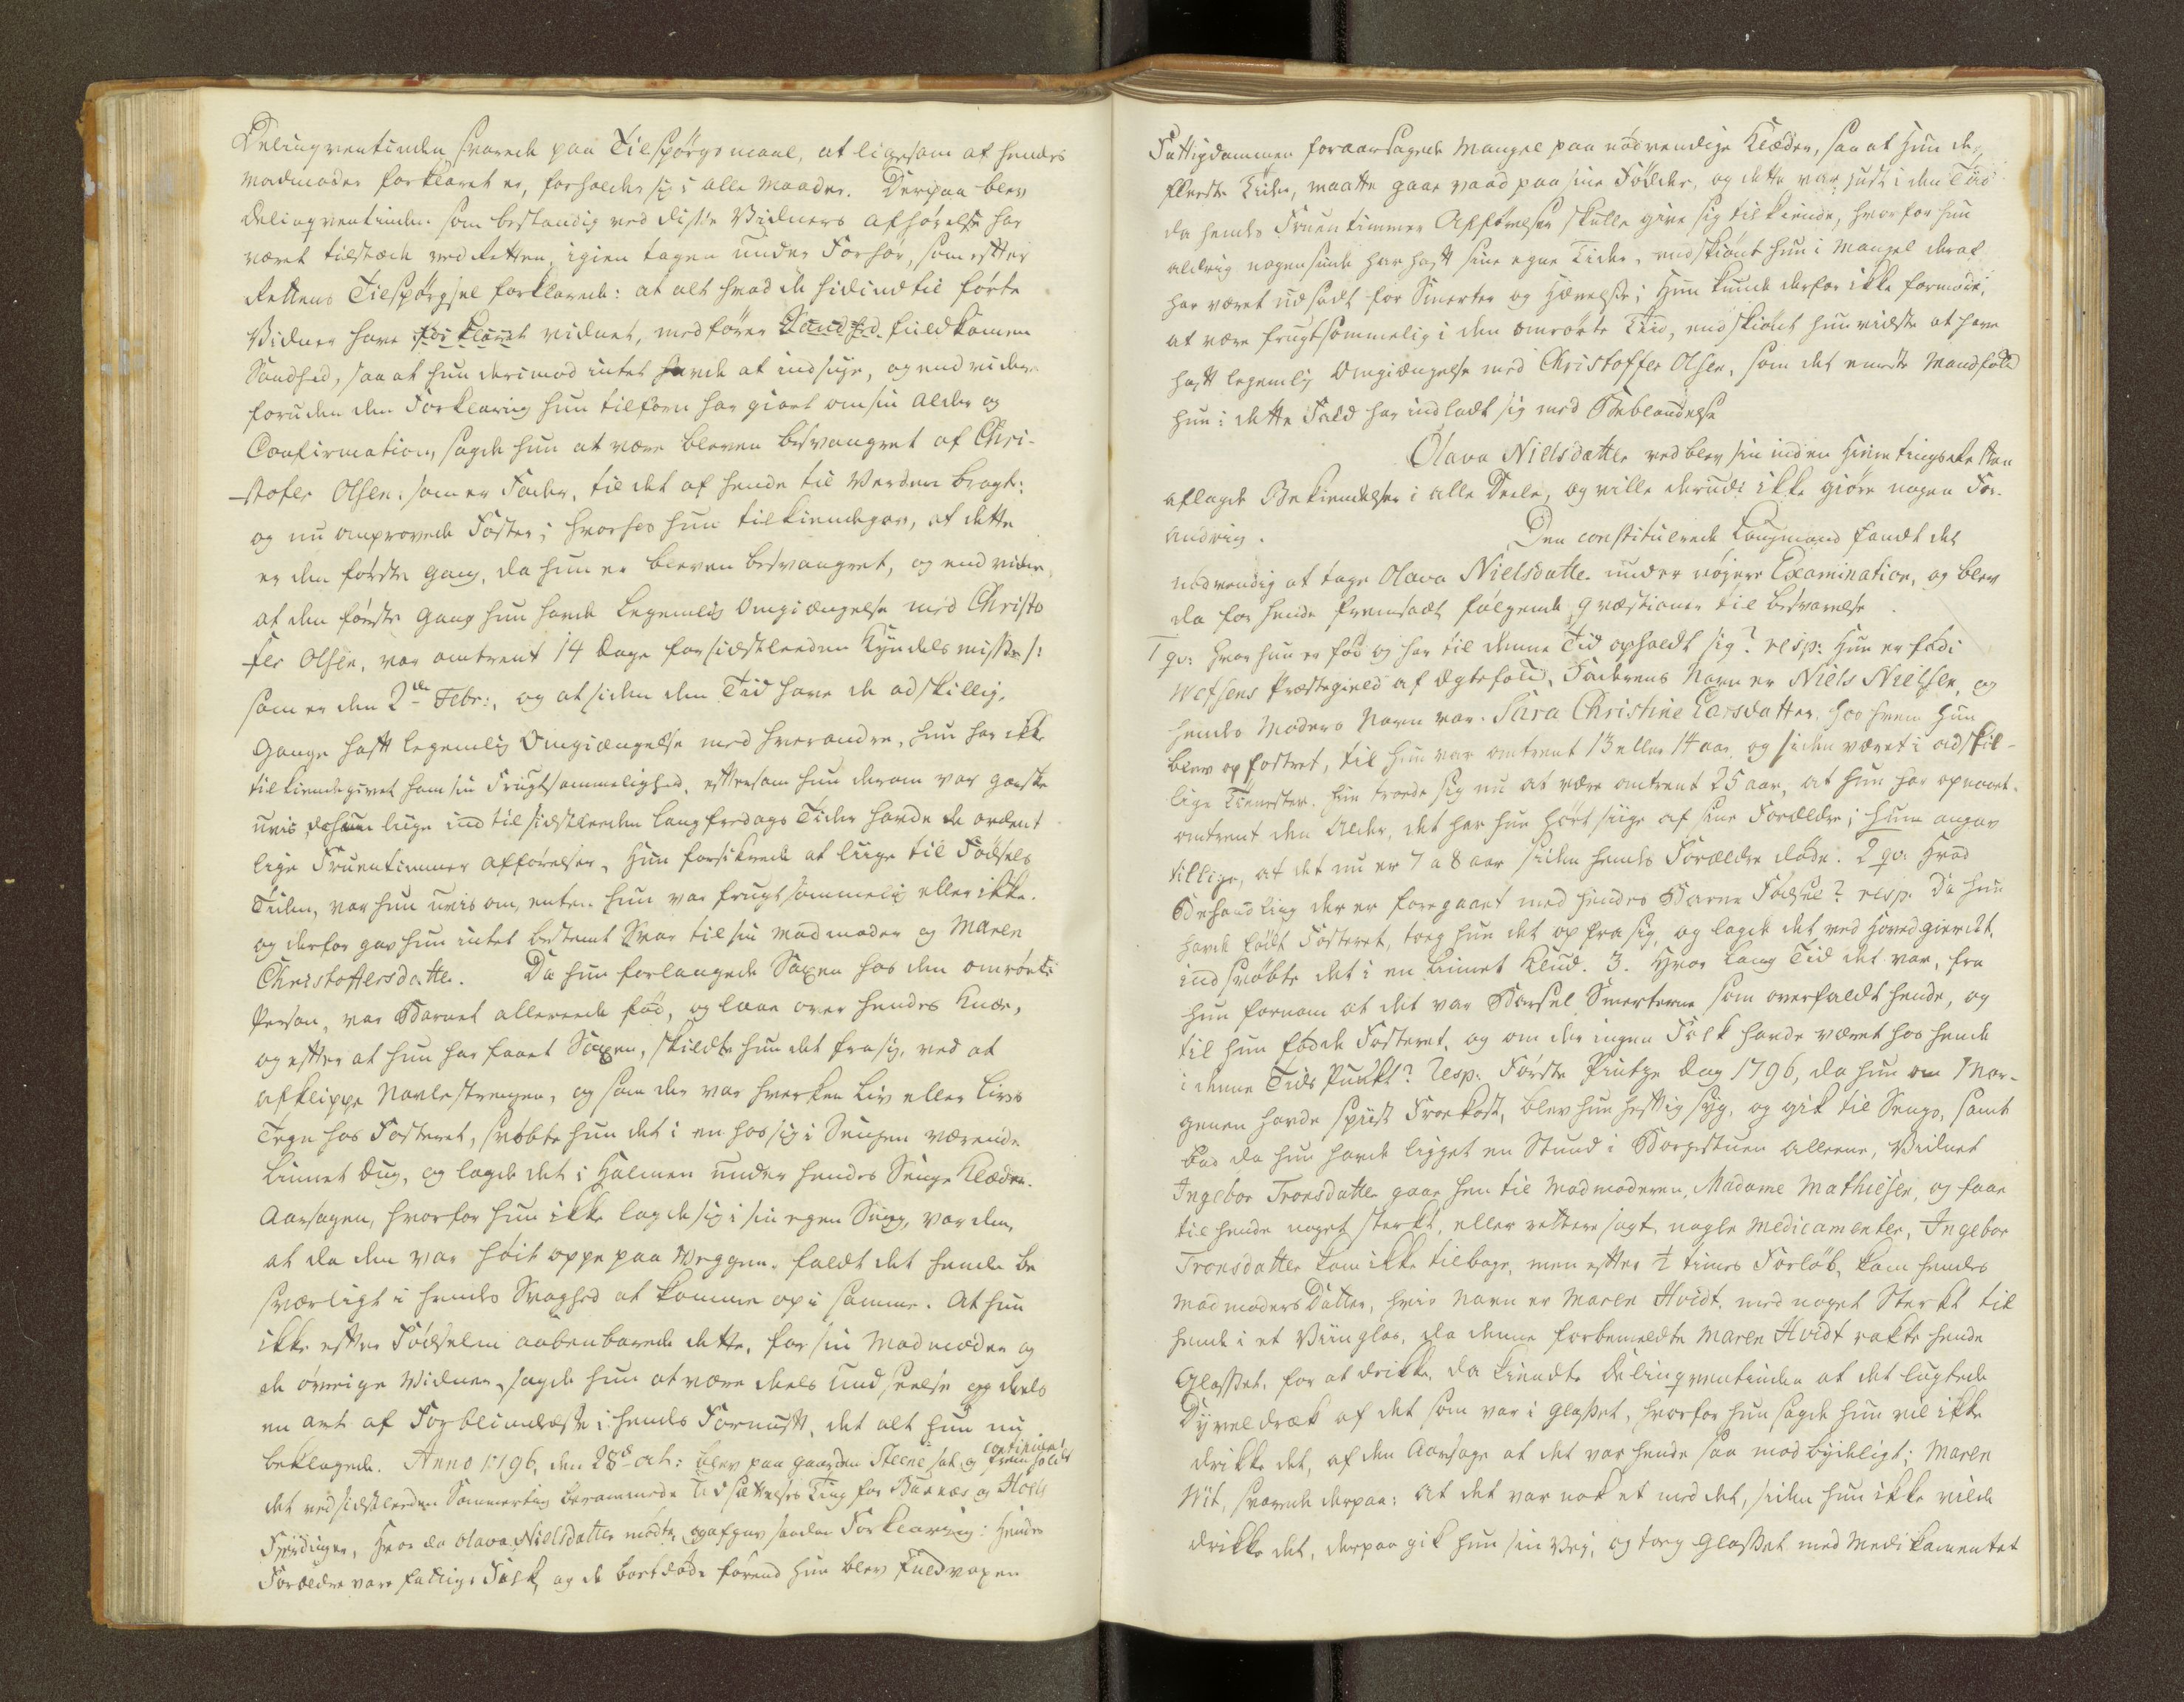 Delinqventinden svarede paa Tilspørgsmaal, at ligesom af hendes
Madmoder forklaret er, forholder sig i alle Maader. Derpaa blev
Delinqventinden som bestandig ved disse Vidners afhørelse har
været tilstæde ved Retten, igien tagen under Forhør, som efter
Rettens Tilspørgsel forklarede: at alt hvad de hidindtil førte
Vidner have forklaret vidnet, medfører Sandhed fuldkommen
Sandhed, saa at hun derimod intet havde at indsige, og end videre
foruden den Forklaring hun tilforn har giort om sin Alder og
Confirmation, sagde hun at være bleven besvangret af Chri-
stofer Olsen. som er Fader, til det af hende til Verden bragt:
og nu omprovede Foster; hvorhos hun tilkiendegav, at dette
er den første gang, da hun er bleven besvangret, og end videre,
at den første gang hun havde Legemlig Omgiængelse med Christo
fer Olsen, var omtrent 14 Dage for sidstleeden Kyndelsmisse /:
som er den 2de Febr:, og at siden den Tid have de adskillig,
Gange haft legemlig Omgiængelse med hverandre, hun har ikke
tilkiendegivet ham sin Frugtsommelighed, eftersom hun derom var ganske
uvis, da hun lige ind til sidstleeden langfredags Tider havde de ordent
lige Fruentimmer afførelser, Hun forsikrede at liige til Fødsels
Tiden, var hun uvis om, enten hun var frugtsommelig eller ikke.
og derfor gav hun intet bestemt Svar til sin Madmoder og Maren
Christoffersdatter. Da hun forlangede Saxen hos den omrørte
Person, var Barnet allereede fød, og laae over hendes Knæe,
og efter at hun har faaet Saxen, skildte hun det fra sig, ved at
afklippe Navlestrengen, og som der var hverken Liv eller Livs
Tegn hos Fosteret, svøbte hun det i en hos sig i Sengen værende
Linnet Dug, og lagde det i Halmen under hendes Senge Klæder.
Aarsagen, hvorfor hun ikke lagde sig i sin egen Seng, var den,
at da den var høit oppe paa Veggen. faldt det hende be
sværligt i hendes Svaghed at komme op i samme. At hun
ikke efter Fødselen aabenbarede dette, for sin Madmoder og
de øvrige Vidner, sagde hun at være deels Undseelse og deels
en art af Forblindelse i hendes Fornuft, det alt hun nu
beklagede. Anno 1796, den 28de Oct: blev paa gaarden Steene sat og continueret fremholdt
det ved sidstleeden Sommerting berammede Tidsættelses Ting for Bunæs og Hols
Fierdinger, Hvor da Olava Nielsdatter mødte, og afgav saadan Forklaring: Hendes
Forældre vare fattige Folk, og de bortdøde førend hun blev fuldvoxen
Fattigdommen foraarsagede Mangel paa nødvendige Klæder, saa at hun de
fleeste Tider, maatte gaae vaad paa sine Fødder, og dette var just i den Tiid
da hendes Fruentimmer Afførelser skulle give sig tilkiende, hvorfor hun
aldrig nogensinde har haft sine egne Tider, endskiønt hun i Mangel deraf
har været udsadt for Smerter og Hævelse; Hun kunde derfor ikke formode,
at være frugtsommelig i den omrørte Tiid, endskiønt hun vidste at have
haft legemlig Omgiængelse med Christoffer Olsen, som det eneeste Mandfold
hun i dette Fald har indladt sig med Beblandelse
Olava Nielsdatter vedblev sin inden Hiemtingsretten
aflagde Bekiendelse i alle Deele, og ville derudi ikke giøre nogen For-
andring. Den constituerede Laugmand fandt det
nødvendig at tage Olava Nielsdatter under nøyere Examination, og blev
da for hende fremsadt følgende qvæstioner til besvarelse.
1 qv: Hvor hun er fød og har til denne Tid opholdt sig? resp: Hun er fød i
Wefsens Præstegield af Ægtefolk, Faderens Navn er Niels Nielsen, og
hendes Moders Navn var Sara Christine Larsdatter, hos hvem Hun
blev opfostret, til hun var omtrent 13 eller 14 aar, og siden været i adskil-
lige Tienester. hun troede sig nu at være omtrent 25 aar, at hun har opnaaet.
omtrent den Alder, det har hun hørt siige af sine Forældre; hun angav
tillige, at det nu er 7 a 8 aar siden hendes Forældre døde. 2 qv. Hvad
Behandling der er foregaaet med hendes Barne Fødsel? resp. Da hun
havde født Fosteret, toeg hun det op fra sig, og lagde det ved Hovedgierdet,
indsvøbte det i en Linnet Klud. 3. Hvor lang Tid det var, fra
hun fornam at det var Barsel Smerterne som overfaldt hende, og
til hun fødde Fosteret, og om der ingen Folk havde været hos hende
i denne Tids Punkt? Resp: Første Pintze Dag 1796, da hun om Mor-
genen havde spiist Frokost, blev hun heftig syg, og gik til Sengs, samt
bad da hun havde ligget en Stund i Borgestuen alleene, Vidnet
Ingebor Tronsdatter gaae hen til Madmoderen, Madame Mathiesen, og faae
til hende noget sterkt, eller rettere sagt, nogle Medicamenter, Ingebor
Tronsdatter kom ikke tilbage, men efter ½ times Forløb, kom hendes
Madmoders Datter, hvis Navn er Maren Hvidt, med noget Sterkt til
hende i et Viinglas, da denne forbemeldte Maren Hvidt rakte hende
Glasset, for at drikke, da kiendte Delinqventinden at det lugtede
Dyvelsdræk af det som var i Glasset, hvorfor hun sagde hun vil ikke
drikke det, af den Aarsage at det var hende saa modbydeligt; Maren
Wit, svarede derpaa: at det var nok et med det, siden hun ikke vilde
drikke det, derpaa gik hun sin Vej, og toeg Glasset med Medikamentet